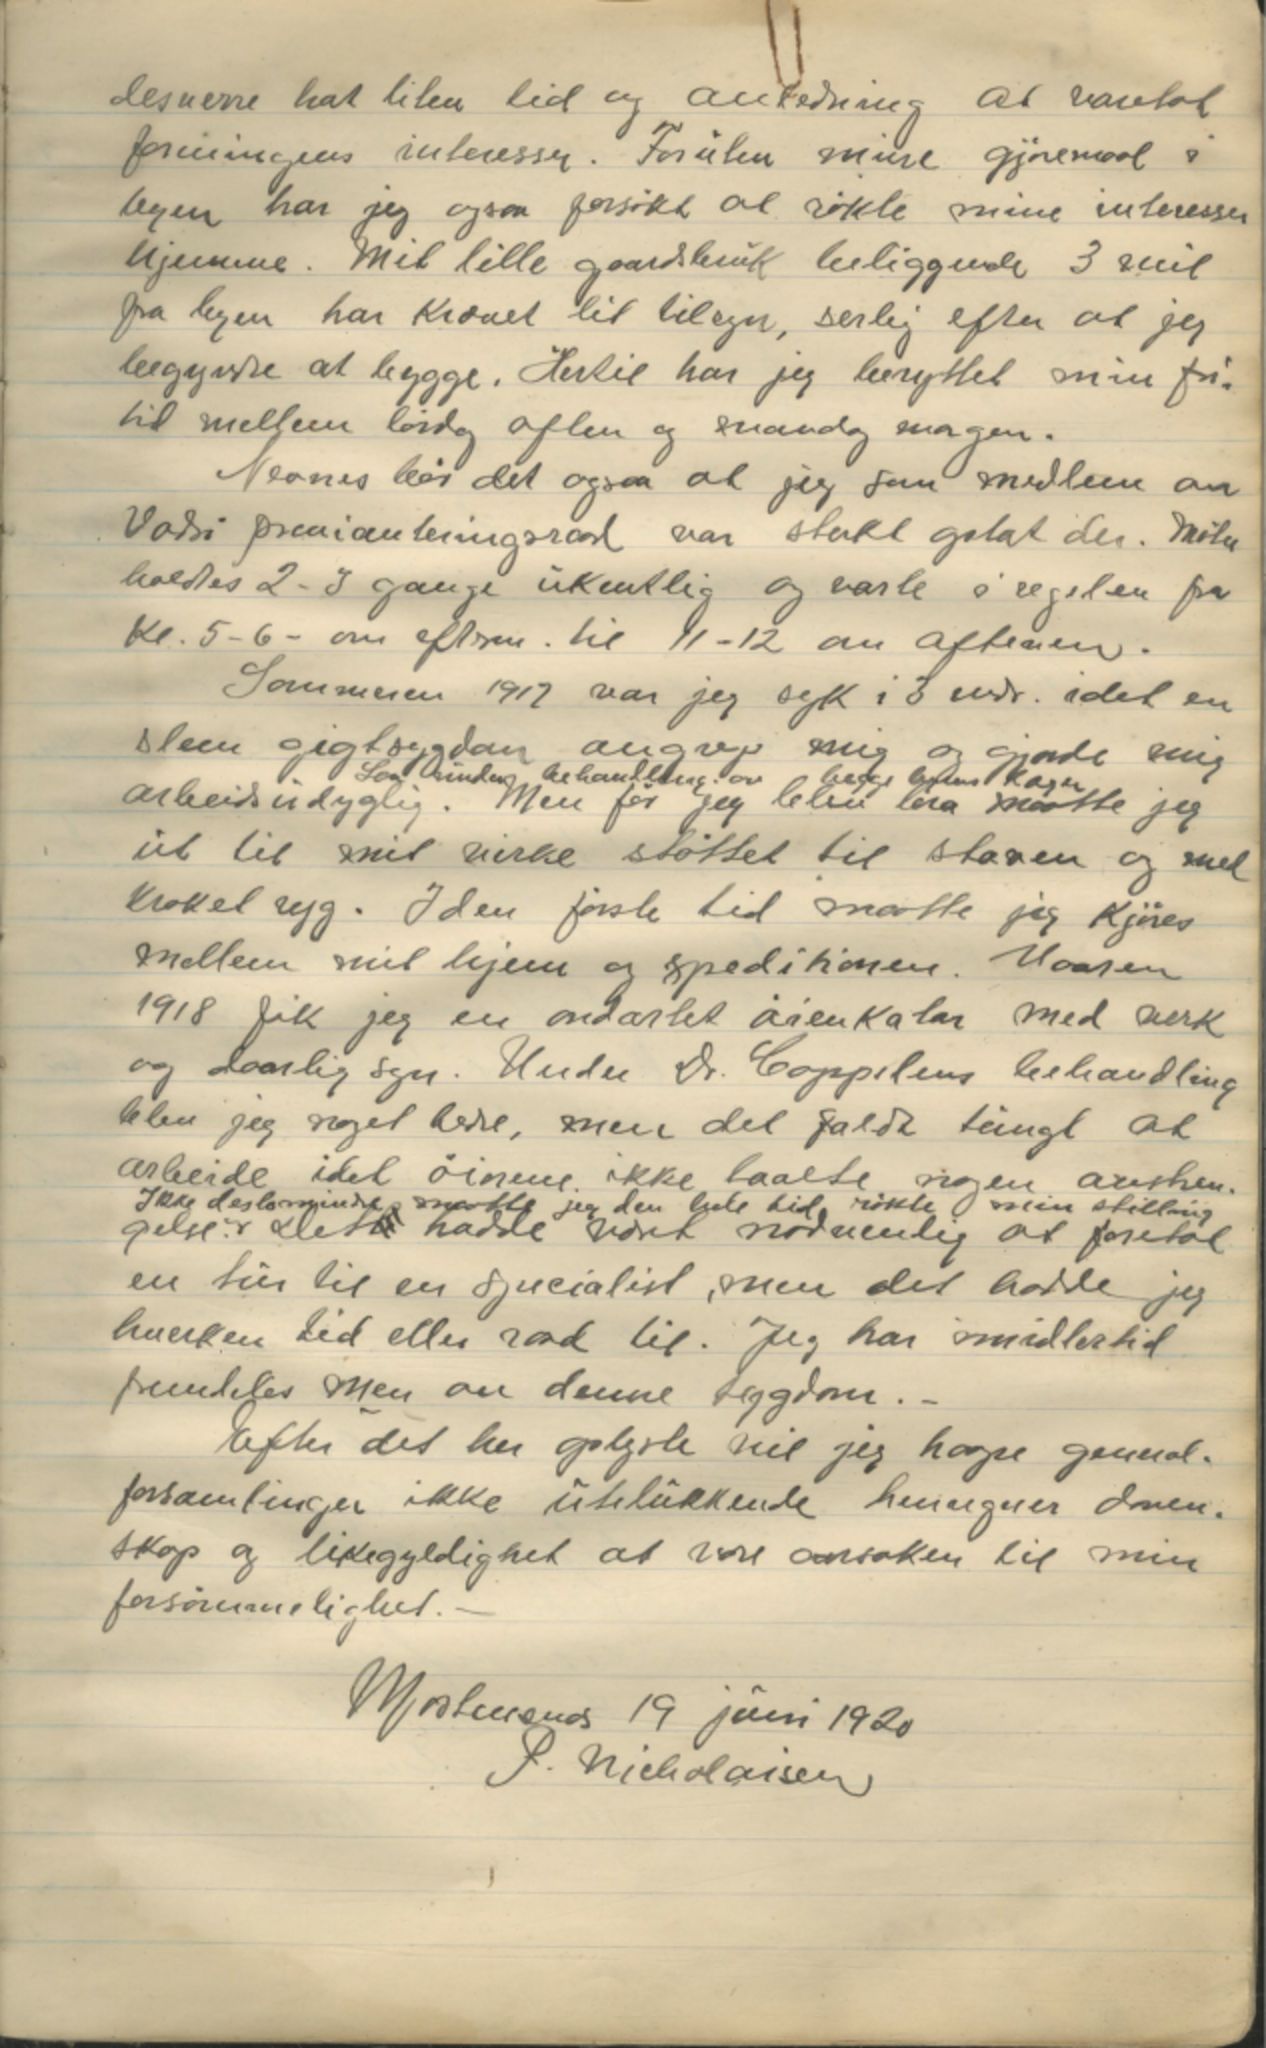 desverre hat liten tid og anledning at vareta
foreningens interesser. Foruten mine gjøremaal i
byen har jeg ogsaa forsøkt at røkte mine interesser
hjemme. Mit lille gaardsbruk beliggende 3 mil
fra byen har krævet lit tilsyn, serlig efter at jeg
begyndte at bygge. Hertil har jeg benyttet min fri-
tid mellem lørdag aften og mandag morgen.
Nevnes bør det ogsaa at jeg som medlem av
Vadsø provianteringsraad var sterkt optat der. Møter
holdtes 2-3 gange ukentlig og varte i regelen fra
kl. 5-6- om efterm. til 11-12 om aftenen.
Sommeren 1917 var jeg syk i 3 mdr. idet en
slem gigtsygdom angrep mig og gjorde mig
Laa under behandling av begge byens læger
arbeidsudyglig. Men før jeg blev bra maatte jeg
ut til mit virke støttet til staven og med
kroket ryg. I den første tid maatte jeg kjøres
mellem mit hjem og speditionen. Vaaren
1918 fik jeg en ondartet øienkatar med verk
og daarlig syn. Under Dr. Coppelens behandling
blev jeg noget bedre, men det faldt tungt at
arbeide idet øinene ikke taalte nogen anstren-
Ikke destomindre maatte jeg den hele tid røkte min stilling
gelse. Det hadde været nødvendig at foreta
en tur til en specialist, men det hadde jeg
hverken tid eller raad til. Jeg har imidlertid
fremdeles men av denne sygdom. -
Efter det her oplyste vil jeg haape general-
forsamlingen ikke utelukkende henregner doven-
skap og likegyldighet at være aarsaken til min
forsømmelighet. -
Mortensnes 19 juni 1920
P. Nicholaisen